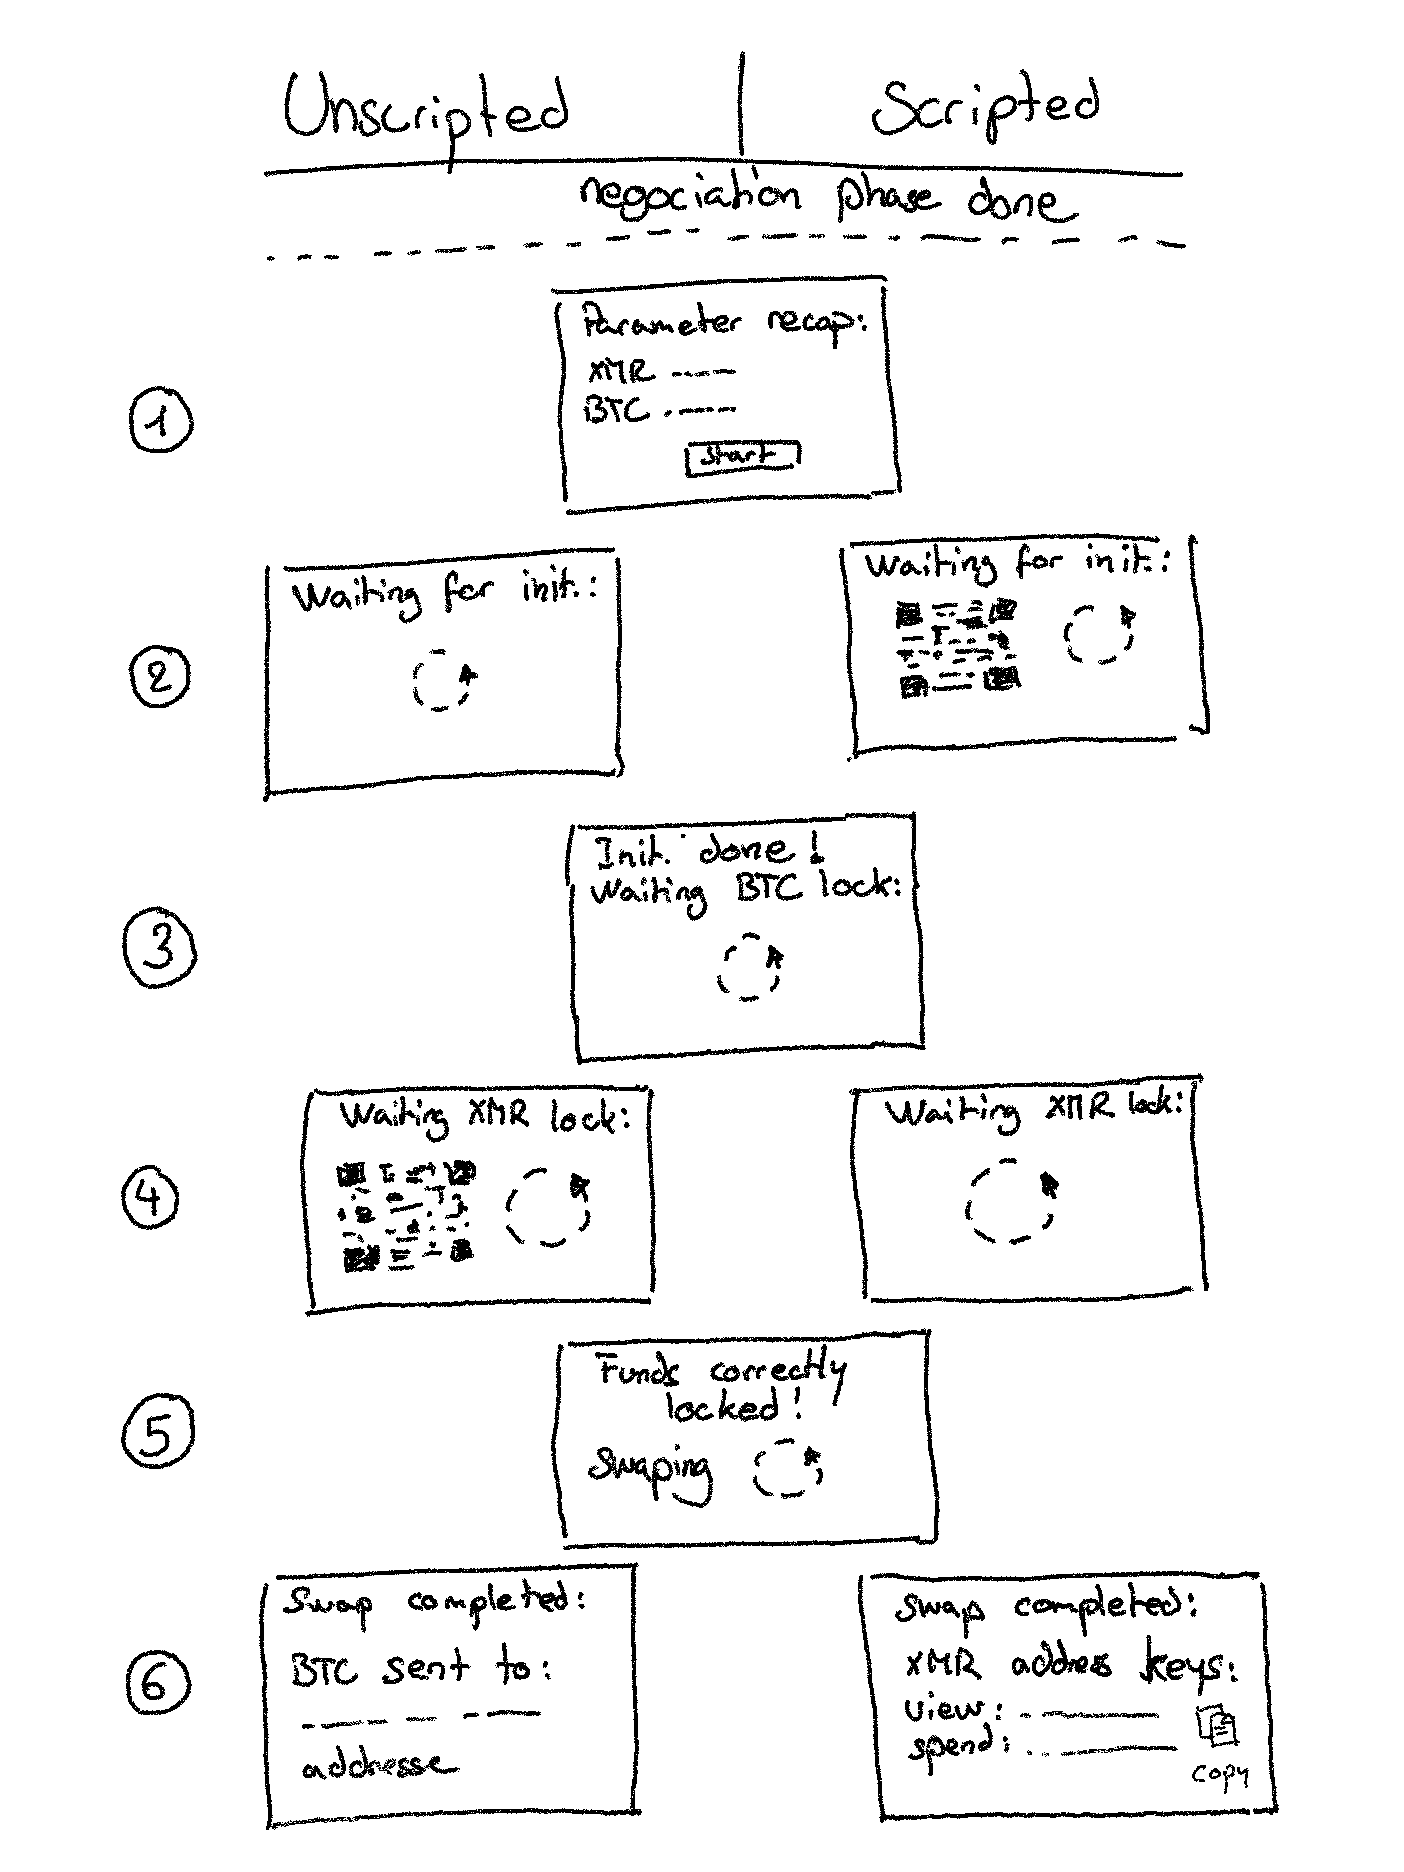 Unscripted | Scripted
negociation phase done
1
Parameter recap:
XMR -----
BTC -----
Start
2
Waiting for init.:
Waiting for init.:
3
Init. done!
Waiting BTC lock:
4
Waiting XMR lock:
Waiting XMR lock:
5
Funds correctly
locked!
Swaping
6
Swap completed:
BTC sent to:
addresse
Swap completed:
XMR address keys:
view:
spend:
copy